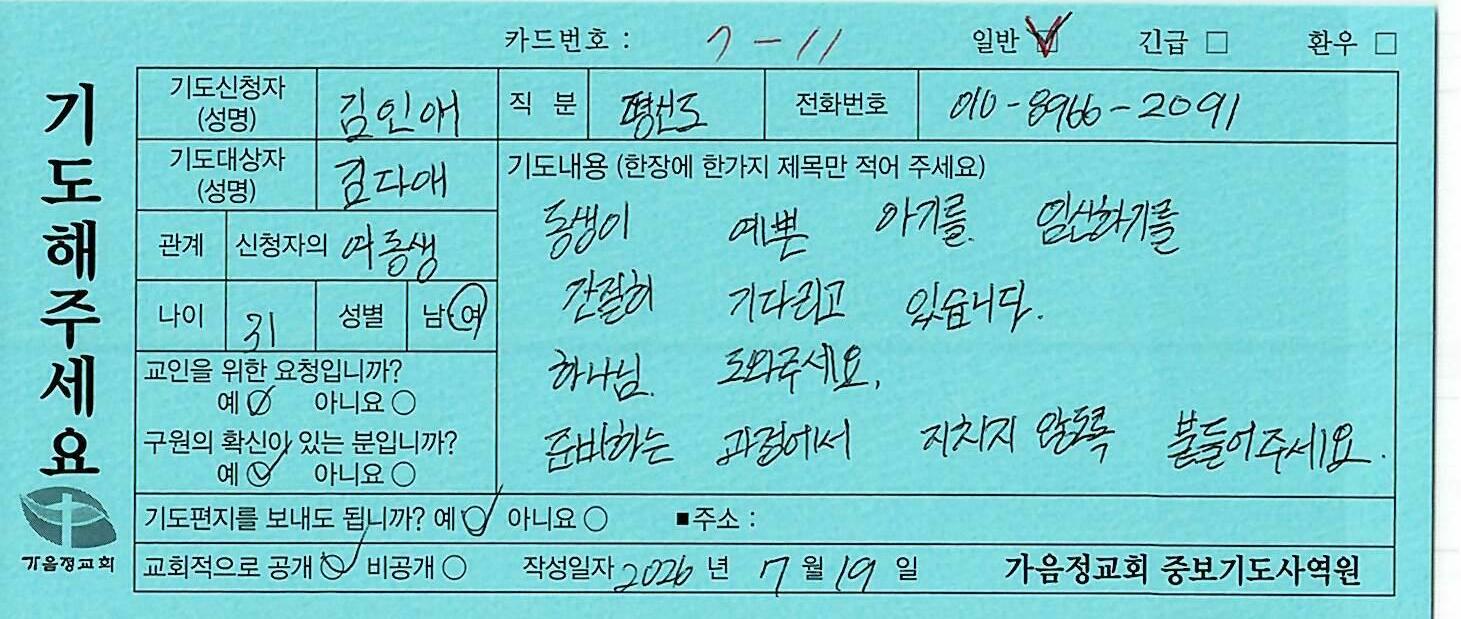 카드번호 : 7-11 일반 ☑ 긴급 □ 환우 □
기도해주세요
기도신청자 (성명) 김인애 직 분 평신도 전화번호 010-8966-2091
기도대상자 (성명) 김다애
관계 신청자의 여동생
나이 31 성별 남·여
교인을 위한 요청입니까?
예 ☑ 아니요 ○
구원의 확신이 있는 분입니까?
예 ☑ 아니요 ○
기도내용 (한장에 한가지 제목만 적어 주세요)
동생이 예쁜 아기를 임신하기를
간절히 기다리고 있습니다.
하나님 도와주세요.
준비하는 과정에서 지치지 않도록 붙들어주세요.
기도편지를 보내도 됩니까? 예 ☑ 아니요 ○ ■주소 :
교회적으로 공개 ☑ 비공개 ○ 작성일자 2026 년 7 월 19 일 가음정교회 중보기도사역원
가음정교회